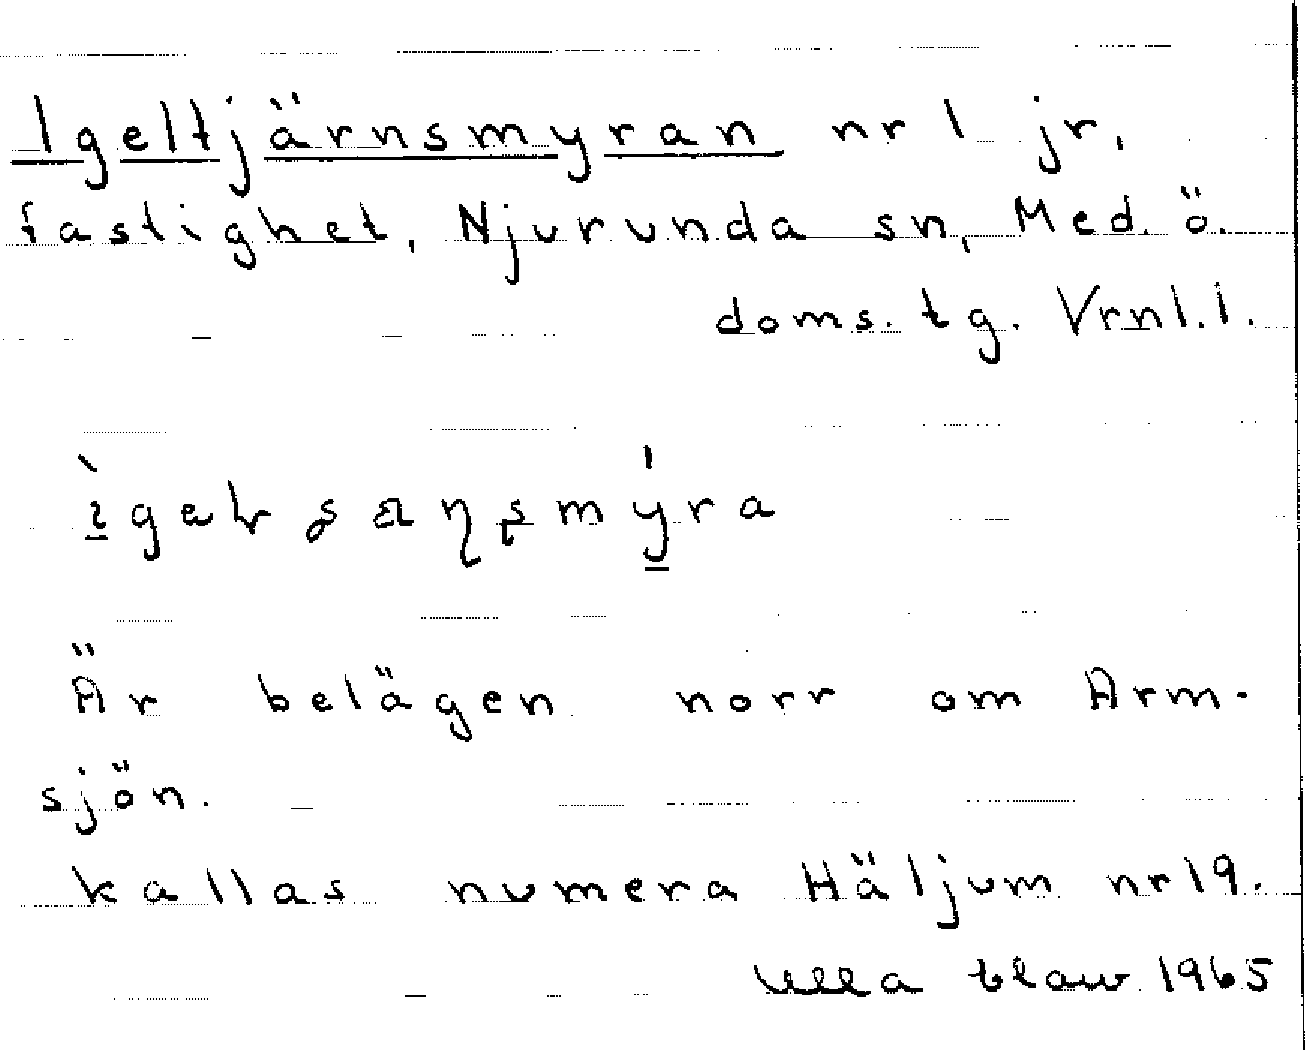 Igeltjärnsmyran nr 1 jr,
fastighet, Njurunda sn, Med. ö.
doms. tg. Vrnl. l.
Är belägen norr om Arm-
sjön.
kallas numera Häljum nr 19.
Ulla 1965